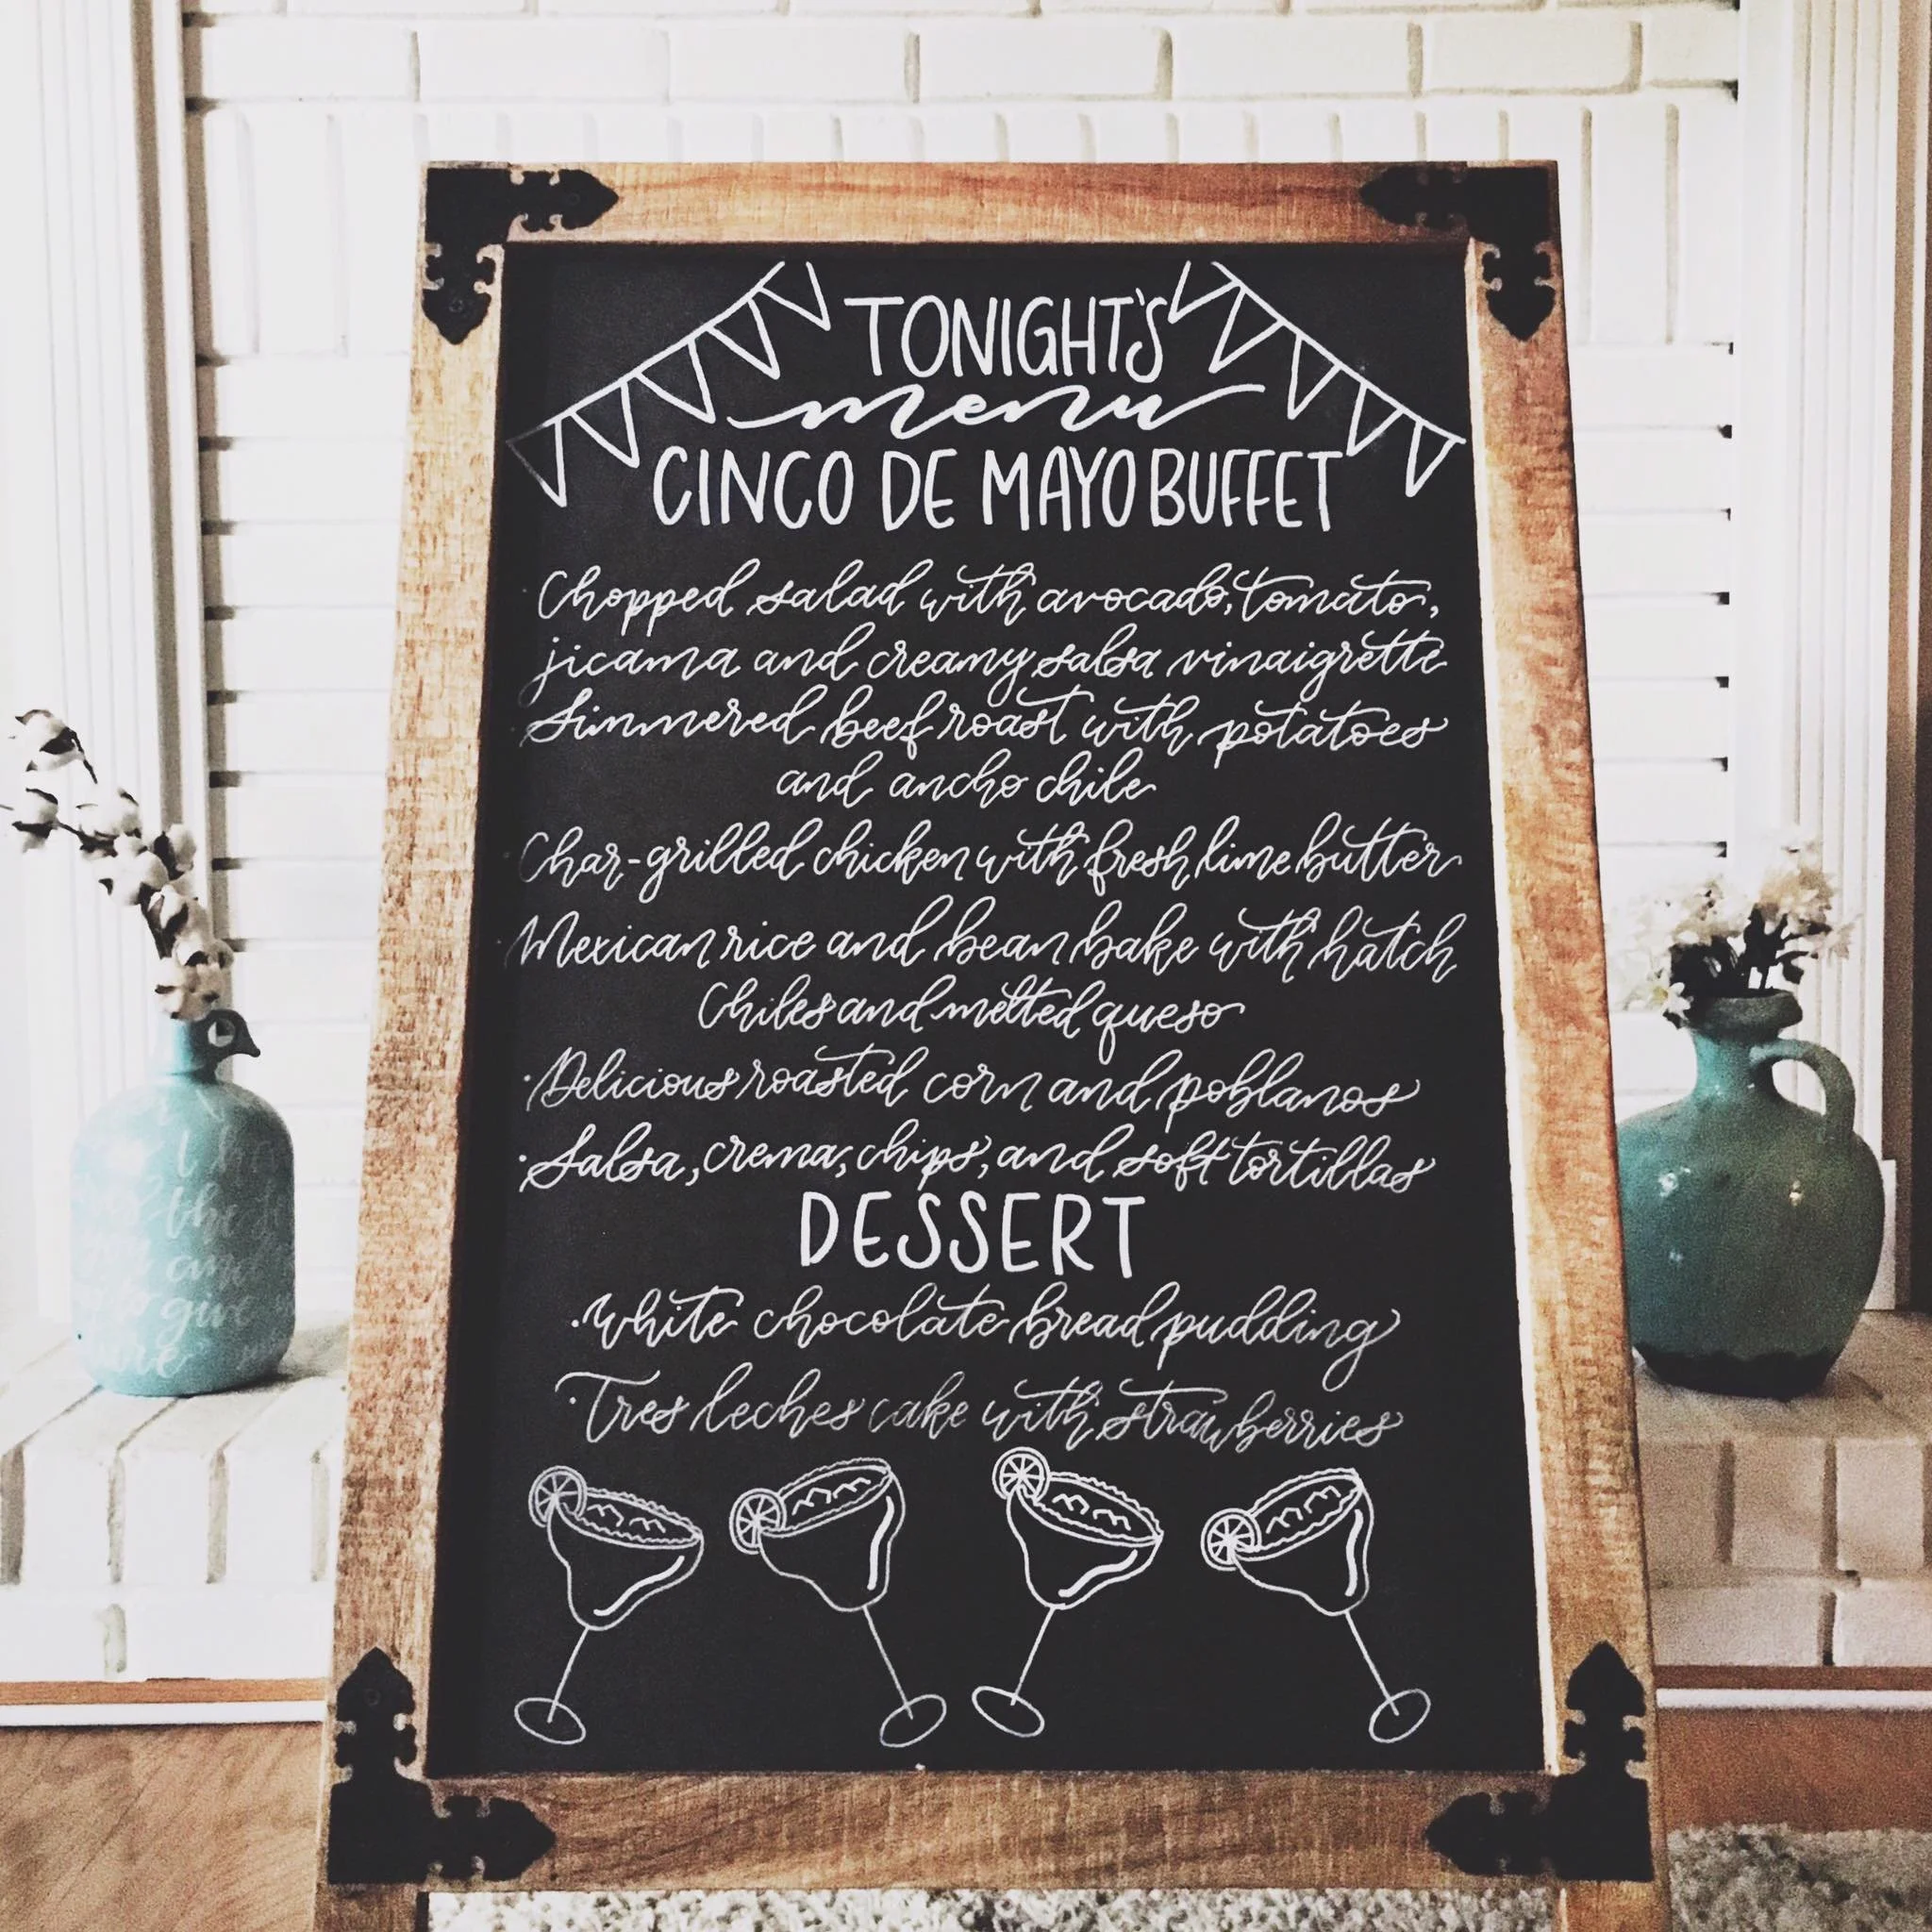 TONIGHT'S
menu
CINCO DE MAYO BUFFET
· Chopped salad with avocado, tomato,
jicama and creamy salsa vinaigrette
· Simmered beef roast with potatoes
and ancho chile
· Char-grilled chicken with fresh lime butter
· Mexican rice and bean bake with hatch
Chiles and melted queso
· Delicious roasted corn and poblanos
· Salsa, crema, chips, and soft tortillas
DESSERT
· White chocolate bread pudding
· Tres leches cake with strawberries
the
and
to give